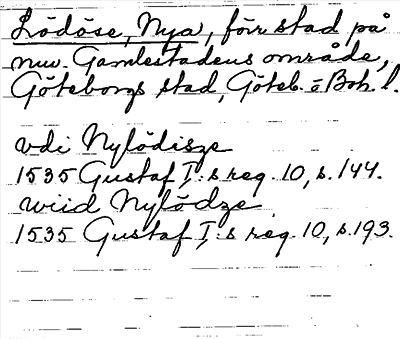 Lödöse, Nya, förr stad på
nuv. Gamlestadens område,
Göteborgs stad, Göteb. o Boh. l.
vdi Nylödisze
1535 Gustaf I:s reg. 10, s. 144.
wiid Nylödze
1535 Gustaf I:s reg. 10, s. 193.